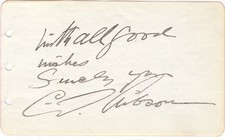 With all good
wishes
Sincerely yrs
C. D. Gibson